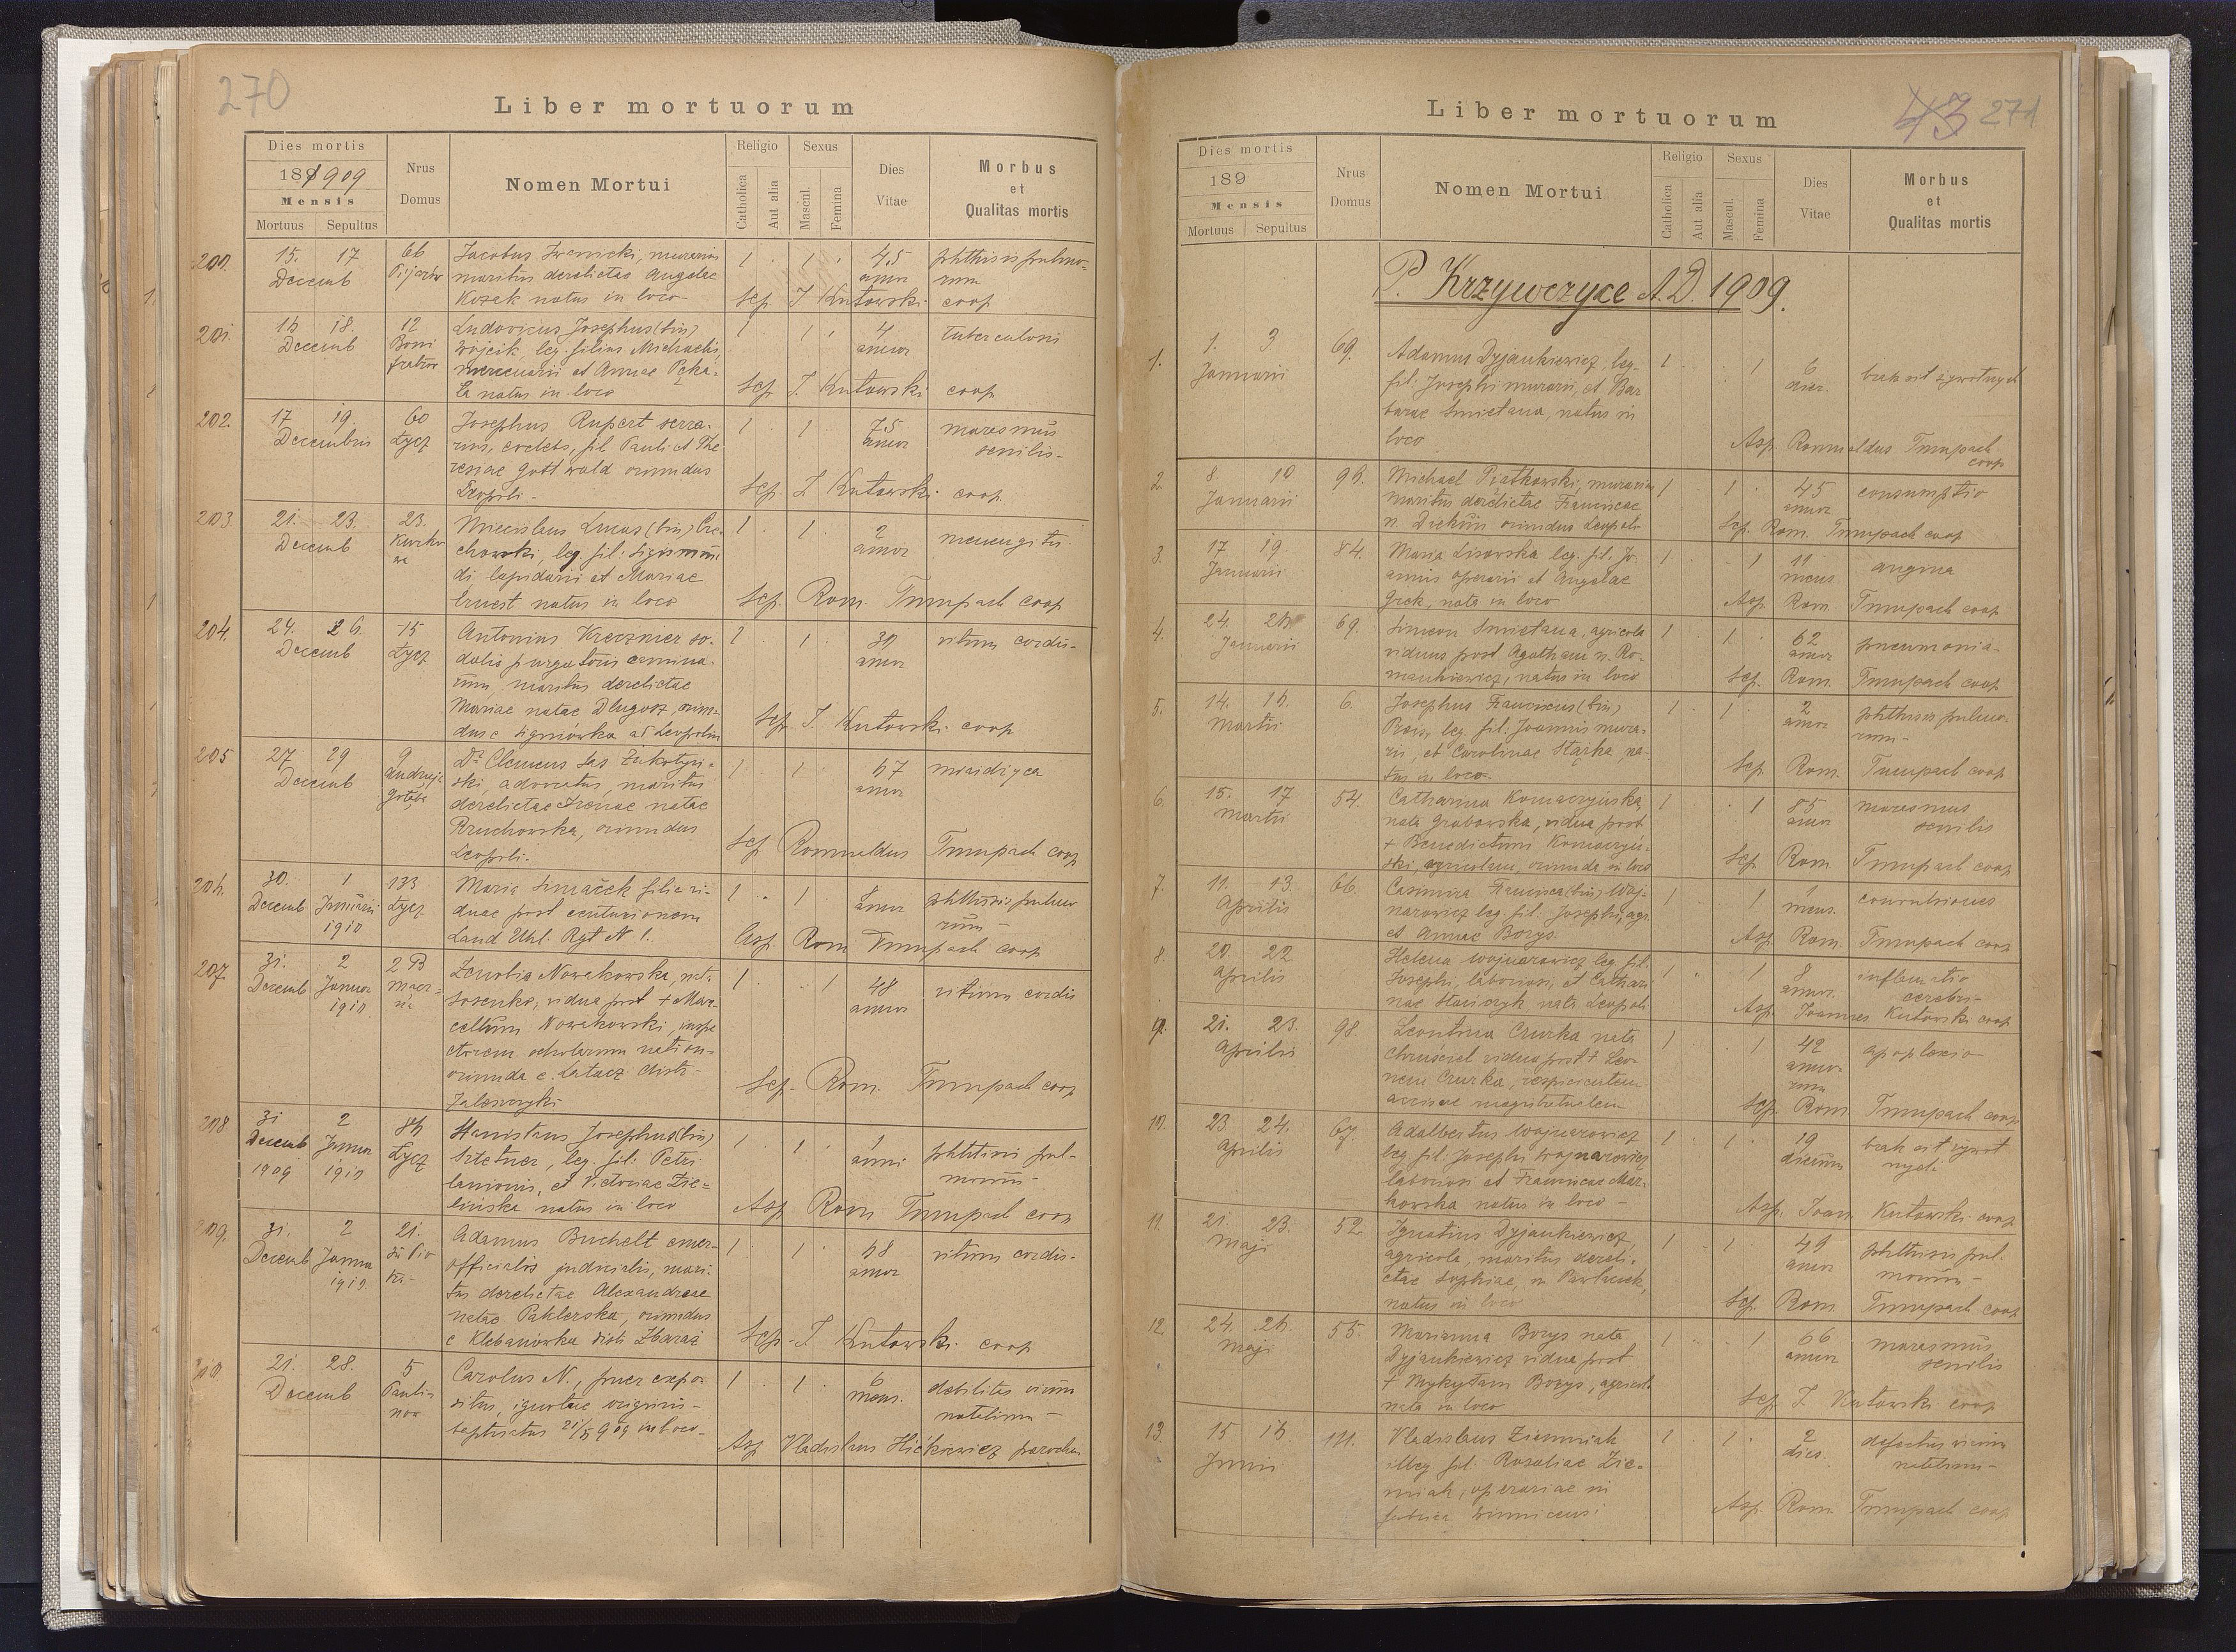 270
Liber mortuorum
Dies mortis
1909
Mensis
Mortuus Sepultus
Nrus Domus
Nomen Mortui
Religio
Catholica
Aut alia
Sexus
Mascul.
Femina
Dies Vitae
Morbus et Qualitas mortis
200. 15. 17 Decemb 66
Jacobus Iwanicki, murarius
maritus derelictae Angelae
Kozak natus in loco
1 1 45 annor phthisis pulmorum
Sep. J Kutowski coop
201. 16 18. Decemb 12 Boni fratrów
Ludovicus Josephus (bin)
Wójcik, leg. filius Michaelis,
mercenarii et Annae Pękala
natus in loco
1 1 4 annor tuberculosis
Sep J Kutowski coop
202. 17 19. Decembris 60 Łycz
Josephus Rupert serrarius,
coelebs, fil Pauli et Theresiae
Gottwald oriundus
Leopoli
1 1 75 annor marasmus senilis
Sep. J. Kutowski coop.
203. 21. 23. Decemb 23.
Miecislaus Lucas (bin)
leg. fil: Sigismundi
lapidarii et Mariae
Ernest natus in loco
1 1 2 annor meningitis
Sep. Rom. Trumpach coop
204. 24. 26. Decemb 15 Łycz
Antonius Kreczmer sodalis
purgatoris caminarum,
maritus derelictae
Mariae natae Długosz,
Signiówka ad Leopolim
1 1 30 annor vitium cordis
Sep. J. Kutowski coop
205 27 29 Decemb 9 Andrzeja Gołąba
Dr Clemens
advocatus, maritus
derelictae Irenae natae
oriundus
Leopoli.
1 1 57 annor
Sep Romualdus Trumpach coop
206. 30. Decemb 1 Januarii 1910 133 Łycz
Maria filia viduae
post centurionem
Land Uhl. Rgt N 1.
1 1 annor phthisis pulmorum
Asp. Rom Trumpach coop
207. 31. Decemb 2 Januar 1910 2 B
Zenobia Nowakowska, nata
Sosenko, vidua post + Marcellum
Nowakowski, inspectorem
scholarum nation
oriunda e Latacz distr
Zaleszczyki
1 1 48 annor vitium cordis
Sep. Rom. Trumpach coop
208 31 Decemb 1909 2 Januar 1910 86 Łycz
Stanislaus Josephus (bin)
Sztetner, leg. fil: Petri
lanionis, et Victoriae Zielińska
natus in loco
1 1 1 anni phthisis pulmonum
Asp Rom Trumpach coop
209. 31. Decemb 2 Januar 1910. 21. Św Piotra
Adamus Buchelt emer.
officialis judicialis, maritus
derelictae Alexandrae
natae Paklerska, oriundus
e Klebanówka distr Zbaraż
1 1 58 annor vitium cordis
Sep. J Kutowski coop
210. 21. 28. Decemb 5 Paulinów
Carolus N., puer expositus,
ignotae originis
baptisatus 909 in loco
1 1 6 mens. debilitas virium natalium
Asp Vladislaus Hićkiewicz parochus
43 271
Liber mortuorum
Dies mortis
189
Mensis
Mortuus Sepultus
Nrus Domus
Nomen Mortui
Religio
Catholica
Aut alia
Sexus
Mascul.
Femina
Dies Vitae
Morbus et Qualitas mortis
P. Krzywczyce A.D. 1909.
1. 1. 3 Januarii 69.
Adamus Dyjankiewicz, leg.
fil. Josephi murarii, et Barbarae
Smietana, natus in
loco
1 1 6 brak sił żywotnych
Asp Romualdus Trumpach coop
2. 8. 10 Januarii 96.
Michael Piatkowski, murarius
maritus derelictae Franciscae
n. oriundus Leopoli
1 1 45 annor consumptio
Sep. Rom. Trumpach coop
3. 17 19. Januarii 84.
Maria Lisowska leg. fil. Joannis
operarii et Angelae
Grek, nata in loco
1 1 11 mens angina
Asp. Rom. Trumpach coop
4. 24. 26 Januarii 69.
Simeon Smietana, agricola
viduus post Agatham n. Romankiewicz,
natus in loco
1 1 62 annor pneumonia
Sep. Rom. Trumpach coop
5. 14. 16. Martii 6.
Josephus Franciscus (bin)
leg. fil. Joannis murarii,
et Carolinae natus
in loco
1 1 2 annor phthisis pulmorum
Sep. Rom. Trumpach coop
6. 15. 17 Martii 54.
Catharina Komaczyńska
nata Grabowska, vidua post
+ Benedictum Komaczyński,
agricolam, oriunda in loco
1 1 85 annor marasmus senilis
Sep Rom. Trumpach coop
7. 11. 13. Aprilis 66.
Casimira Francisca (bin) Wojnarowicz
leg. fil. Josephi, agr.
et Annae Borys
1 1 1 mens. convulsiones
Asp. Rom. Trumpach coop
8. 20. 22 Aprilis
Helena Wojnarowicz leg. fil.
Josephi, laboriosi, et Catharinae
nata Leopoli
1 1 8 annor. inflamatio cerebri
Asp. Joannes Kutowski coop
9. 21. 23. Aprilis 98.
Leontina Czurka nata
Chruściel vidua post + Leonem
Czurka, respicientem
accisae magistratualem
1 1 42 annorum apoplexia
Sep. Rom. Trumpach coop
10. 23 24. Aprilis 67.
Adalbertus Wojnarowicz
leg. fil: Josephi Wojnarowicz
laboriosi et Franciscae Markowska
natus in loco
1 1 19 dierum brak sił żywotnych
Asp. Joan Kutowski coop
11. 21. 23. Maji 52
Ignatius Dyjankiewicz,
agricola, maritus derelictae
Sophiae n Pawlaczek,
natus in loco
1 1 49 annor phthisis pulmonum
Sep. Rom. Trumpach coop
12. 24. 26. Maji 55.
Marianna Borys nata
Dyjankiewicz vidua post
+ Mykytam Borys, agricola
nata in loco
1 1 66 annor marasmus senilis
Sep. J. Kutowski coop
13. 15 16. Junii 111.
Vladislaus Ziemniak
illeg. fil. Rosaliae Ziemniak,
operariae in
fabrica
1 1 2 dies. defectus virium natalium
Asp. Rom. Trumpach coop